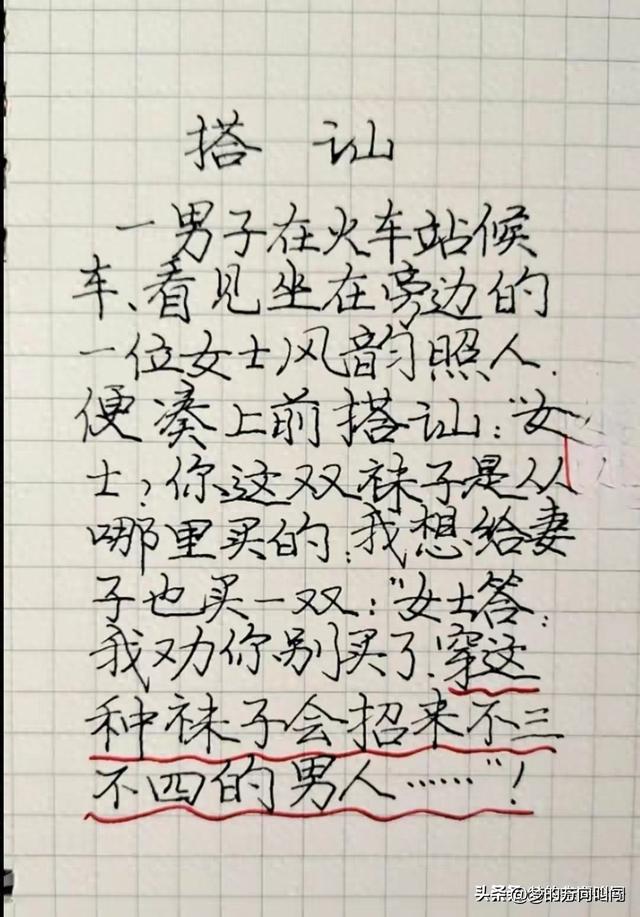 搭讪
一男子在火车站候
车、看见坐在旁边的
一位女士风韵照人.
便凑上前搭讪:"女
士,你这双袜子是从
哪里买的,我想给妻
子也买一双:"女士答:
我劝你别买了.穿这
种袜子会招来不三
不四的男人……"!
头条@梦的方向叫闯